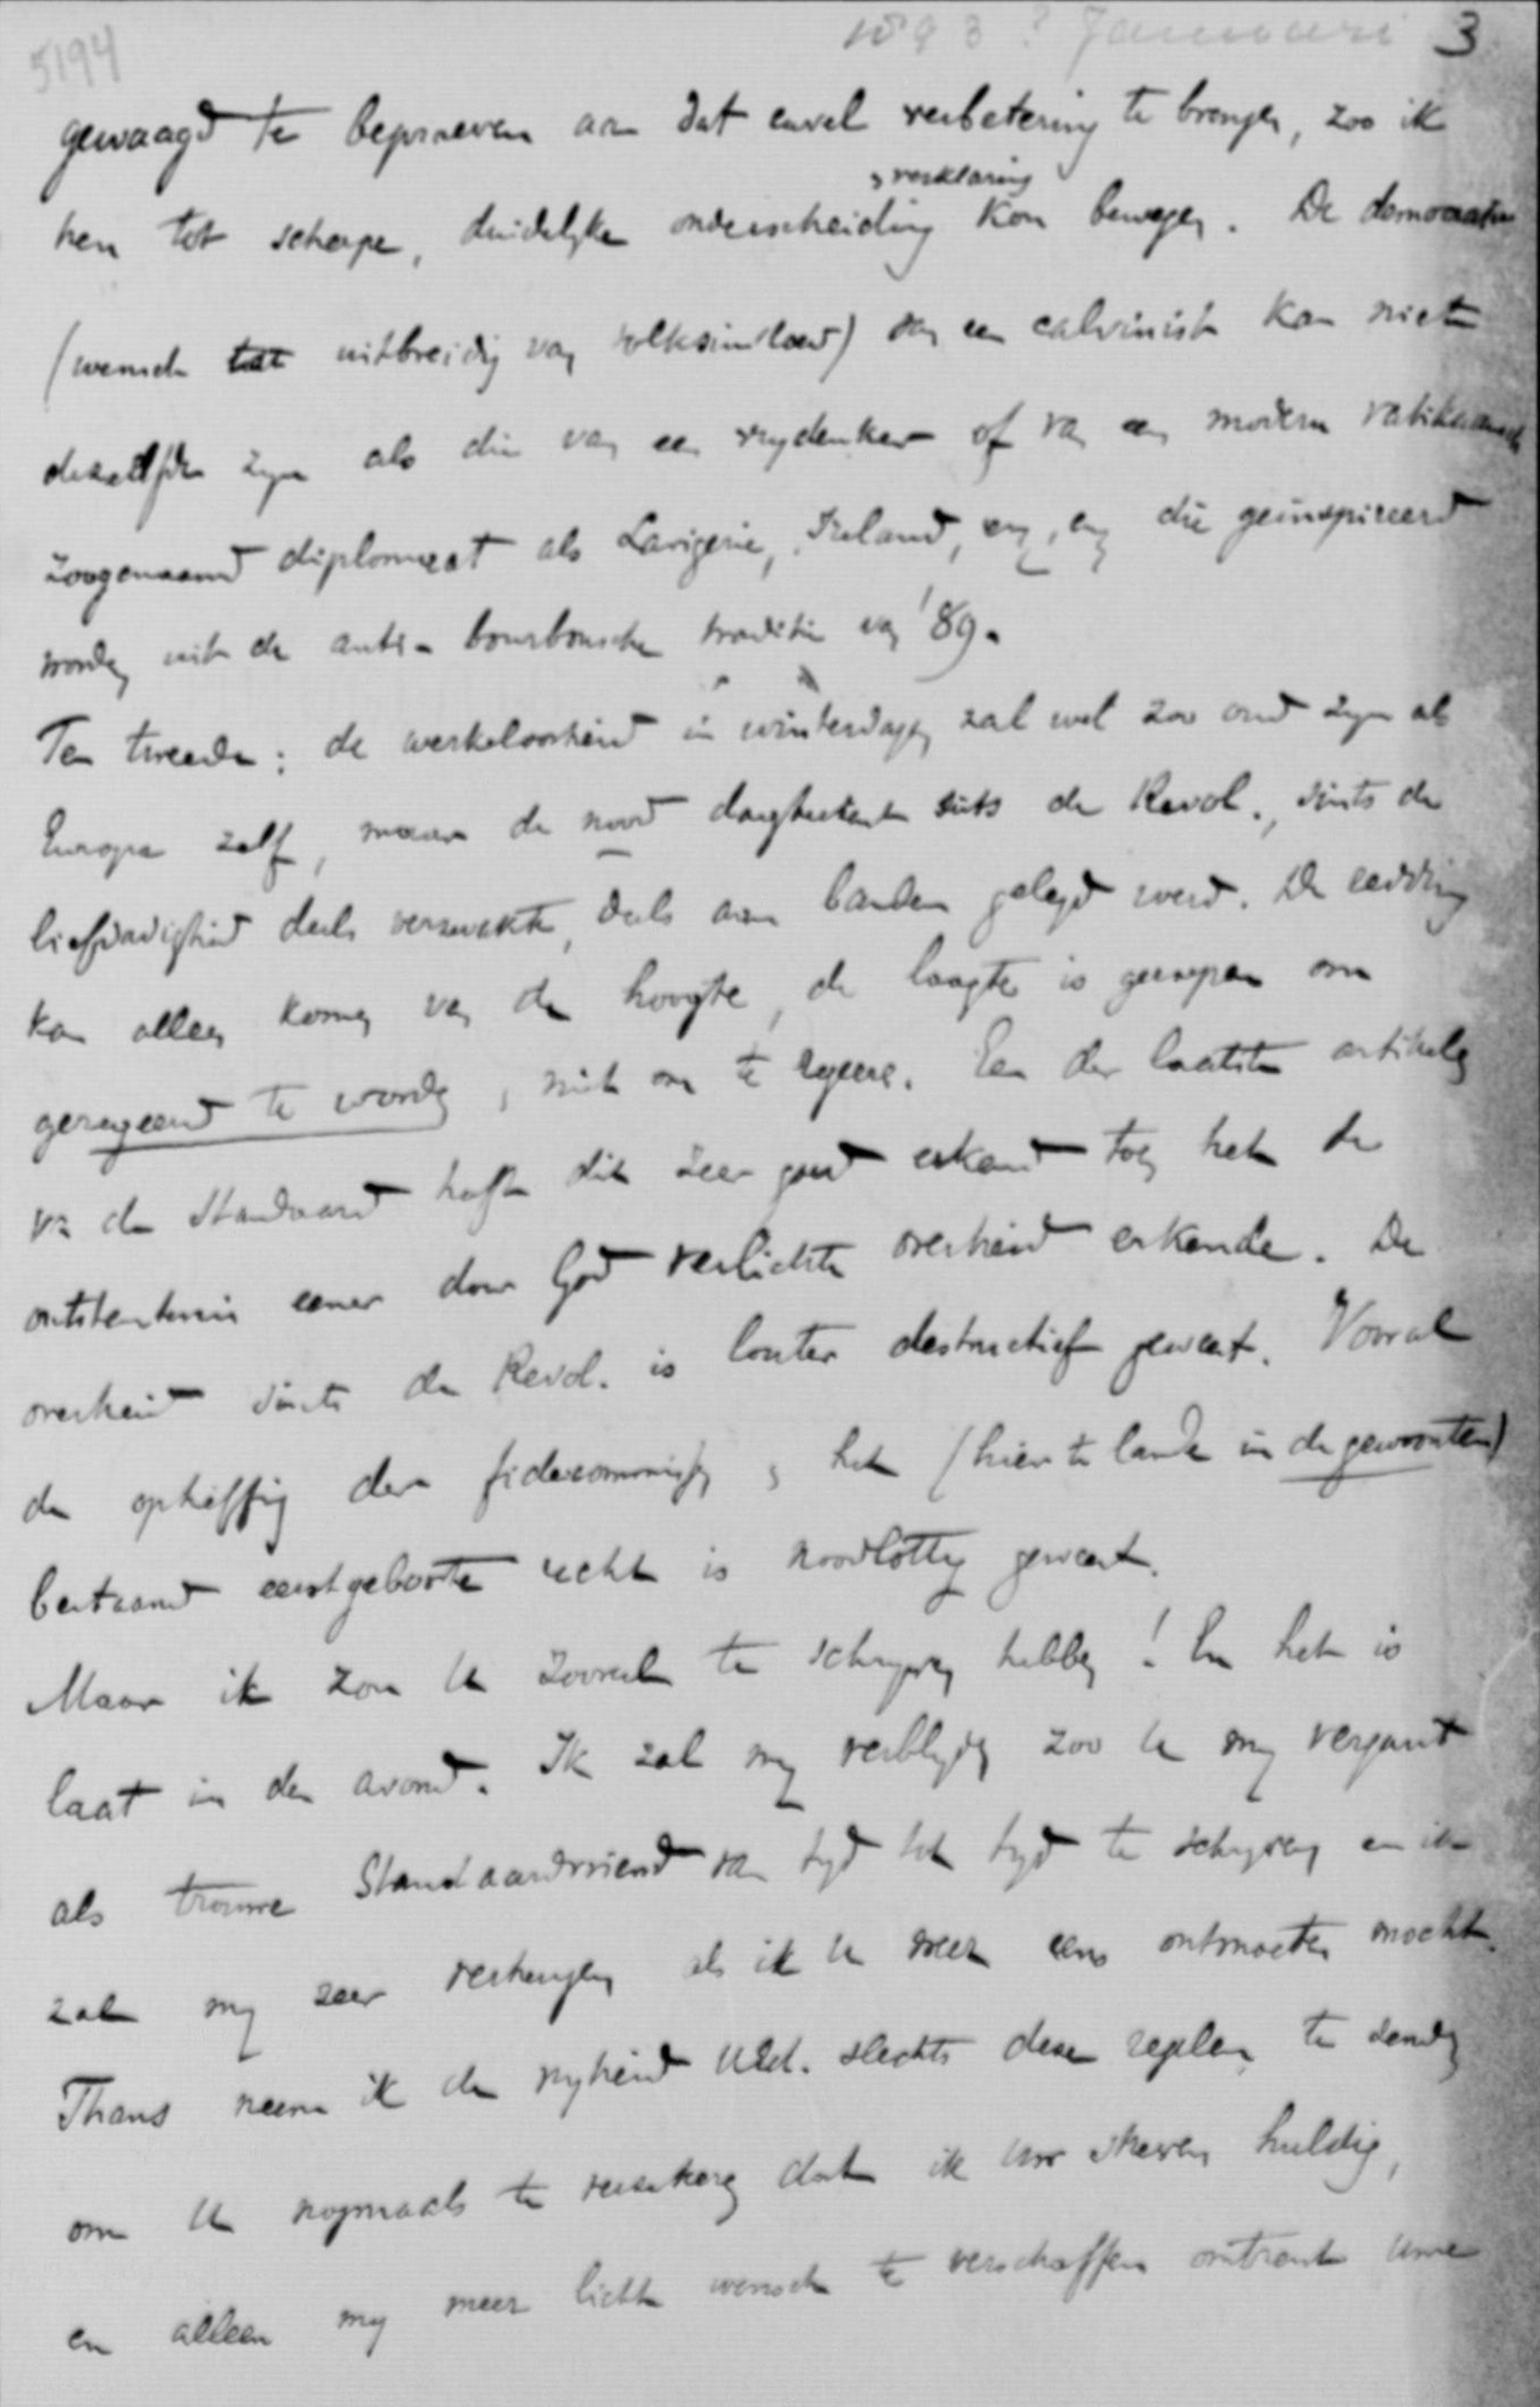 5194 1893? Januari 3
gewaagd te beproeven aan dat euvel verbetering te brengen, zoo ik
& verklaring
hen tot scherpe, duidelyke onderscheiding kon bewegen. De democratie
(wensch tot uitbreidig van volksinvloed) van een calvinist kan niet
dezelfde zyn als die van een vrydenker of van een modern vatikaansch
zoogenaamd diplomaat als Lavigerie, Ireland, enz, enz die geinspireerd
worden uit de anti-bourbonsche traditie van '89.
Ten tweede: de werkeloosheid in winterdagen zal wel zoo oud zyn als
Europa zelf, maar de nood dagteekent sints de Revol., sints de
liefdadigheid deels verzwakte, deels aan banden gelegd werd. De redding
kan alleen komen van de hoogte, de laagte is geroepen om
geregeerd te worden, niet om te regeere. Een der laatste artikelen
van de Standaard heeft dit zeer goed erkend toen het de
ontstentenis eener door God verlichte overheid erkende. De
overheid sints de Revol. is louter destructief geweest. Vooral
de opheffing der fidecommissen & het (hier te lande in de gewoonten)
bestaand eerstgeboorte recht is noodlottig geweest.
Maar ik zou U zooveel te schryven hebben! En het is
laat in den avond. Ik zal my verblyden zoo U my vergunt
als trouwe Standaardvriend van tyd tot tyd te schryven en ik
zal my zeer verheugen als ik U weer eens ontmoeten mocht.
Thans neem ik de vryheid UEd. slechts deze regelen te zenden
om U nogmaals te verzekeren dat ik Uw streven huldig,
en alleen my meer licht wensch te verschaffen omtrent Uwe